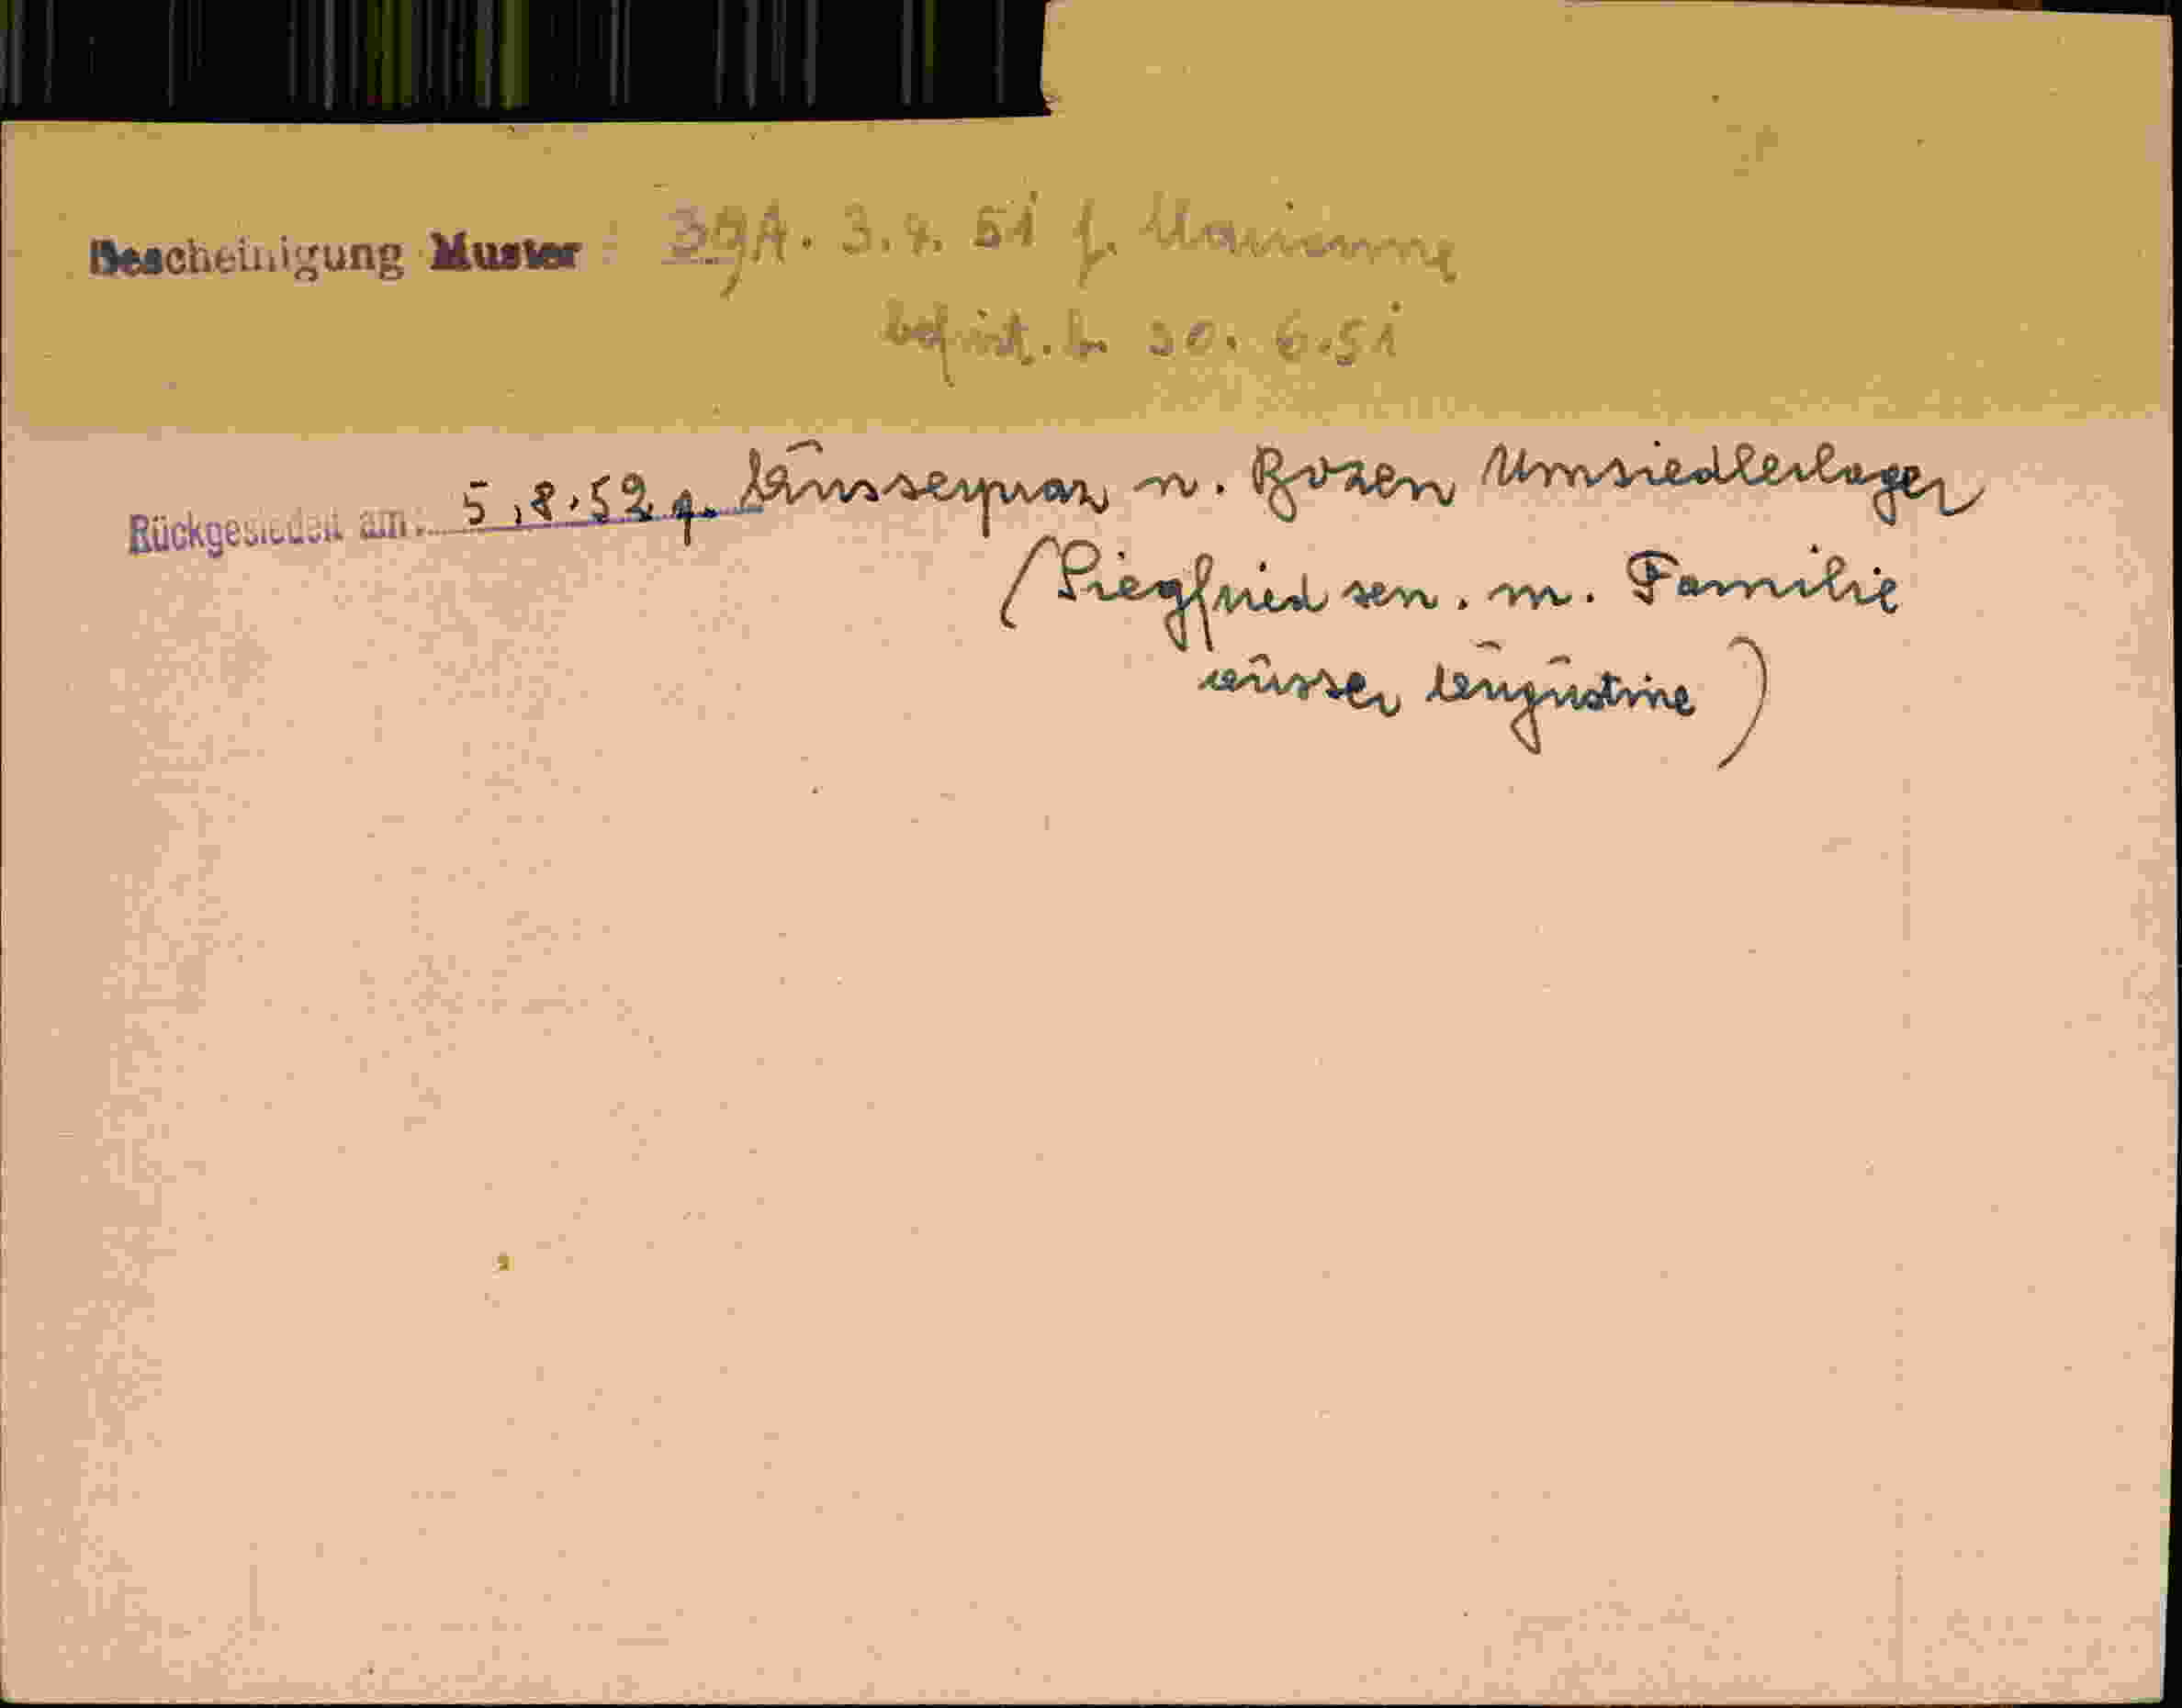 Bescheinigung Muster : 39A. 3.4. 51 f. Marianne
befrist. b. 30. 6. 51
Rückgesiedelt am: 5.8.52 g. Ausserpraz n. Bozen Umsiedlerlager
(Siegfried sen. m. Familie
ausser Augustine)